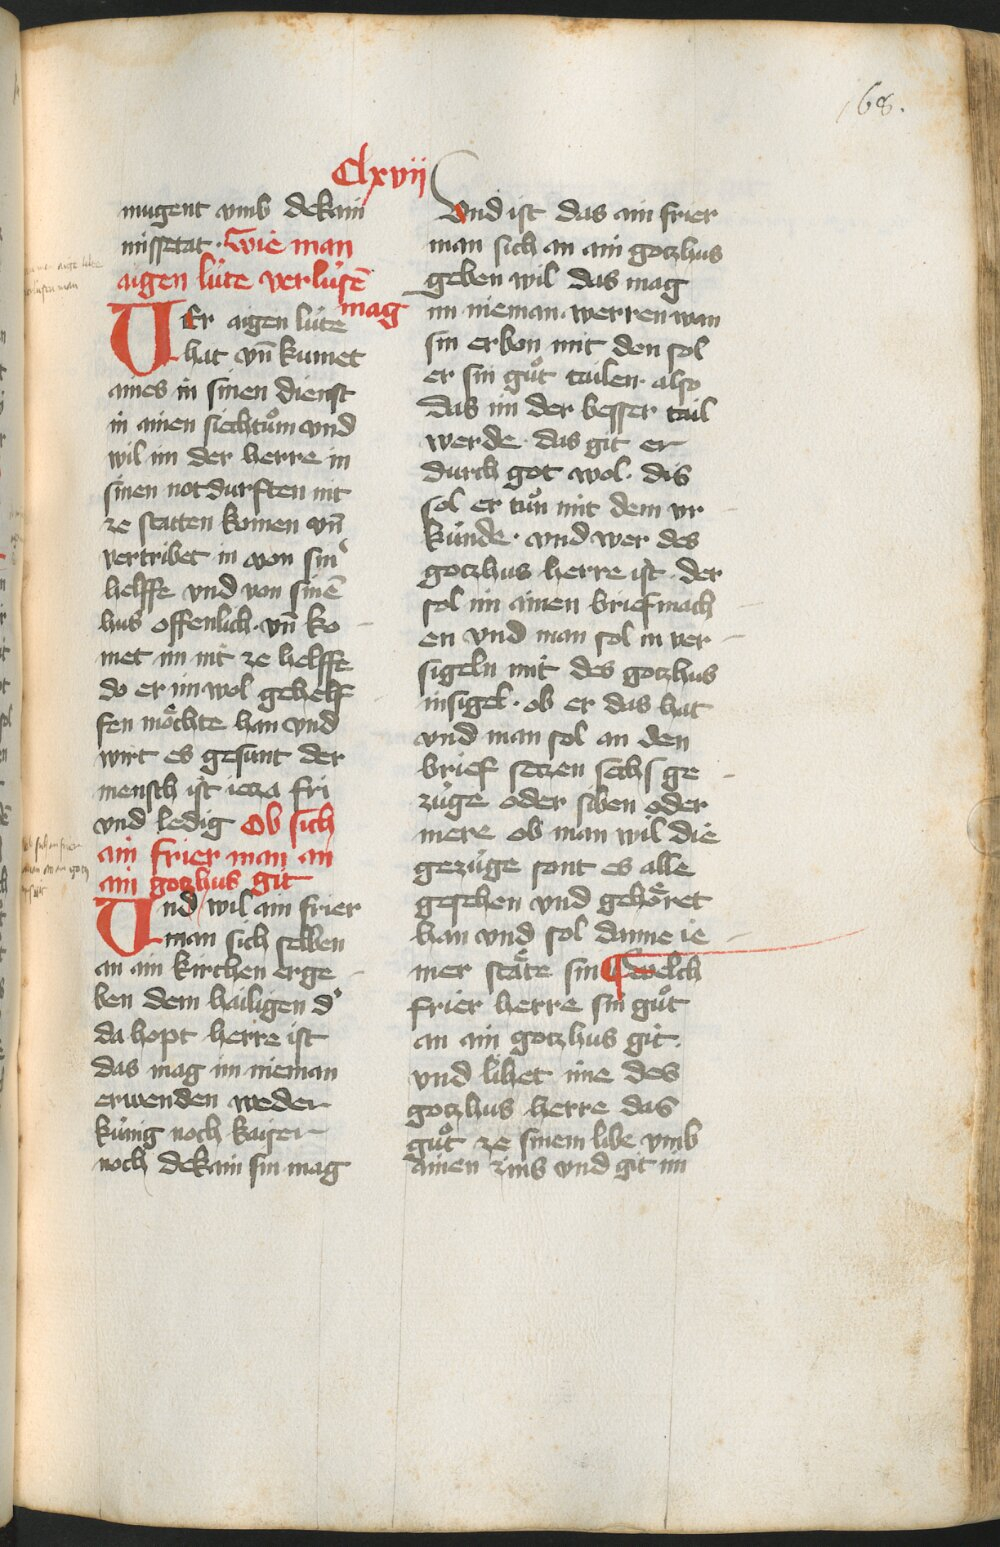 168.
Clxvij
mugent vmb dekain
missetat · Wie man
aigen lu̍te verlu̍sē
mag
WEr aigen lu̍te
hat vn̄ kumet
aines in sinen dienst
in ainen siechtu̍m vnd
wil im der herre in
sinen notdurften nit
ze statten komen vn̄
vertribet in von sinʼ
helffe vnd von sinē
hus offenlich · vn̄ ko
met im nit ze helffe
do er im wol gehelf
fen möchte han vnd
wirt es gesunt der
mensch ist ieza fri
vnd ledig Ob sich
ain frier man an
ain gotzhus git
Vnd wil ain frier
man sich selben
an ain kirchen erge
ben dem hailigen dʼ
da hopt herre ist
das mag im nieman
erwenden weder
ku̍nig noch kaiser
noch dekain sin mag
Vnd ist das ain frier
man sich an ain gotzhus
geben wil das mag
im nieman · werren wan
sin erbon mit den sol
er sin gůt tailen · also
das im der besser tail
werde · das git er
durch got wol · dis
sol er tůn mit dem vr
ku̍nde · vnd wer des
gotzhus herre ist · der
sol im ainen brief mach
en vnd man sol in ver
sigeln mit des gotzhus
insigel · ob er das hat
vnd man sol an den
brief setzen sechs ge
zu̍ge oder siben oder
mere ob man wil die
gezu̍ge sont es alle
gesehen vnd gehöret
han vnd sol danne ie
mer stäte sin Welch
frier herre sin gůt
an ain gotzhus git
vnd lihet ime des
gotzhus herre das
gůt ze sinem libe vmb
ainen zins vnd git im